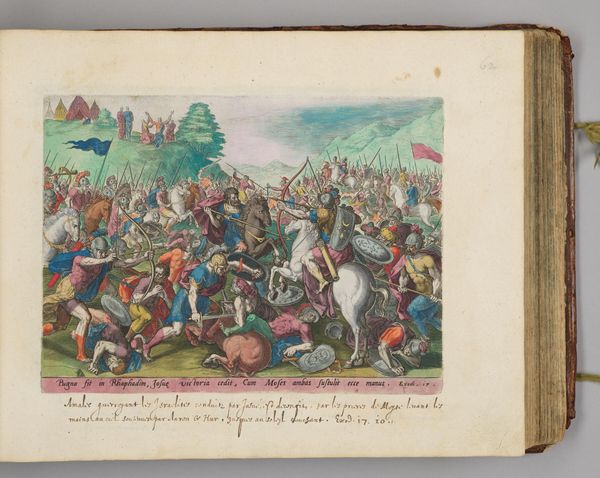 62
Pugna fit in Rhaphidim, Josuæ victoria cedit, Cum Moses ambas sustulit ecce manus. Exodi. 17.
Amalec guerroyant les Israelites conduits par Josué, est par les prieres de Moyse levant les
mains au ciel soustenues par Aaron & Hur, jusques au soleil couchant. Exod. 17. 10.